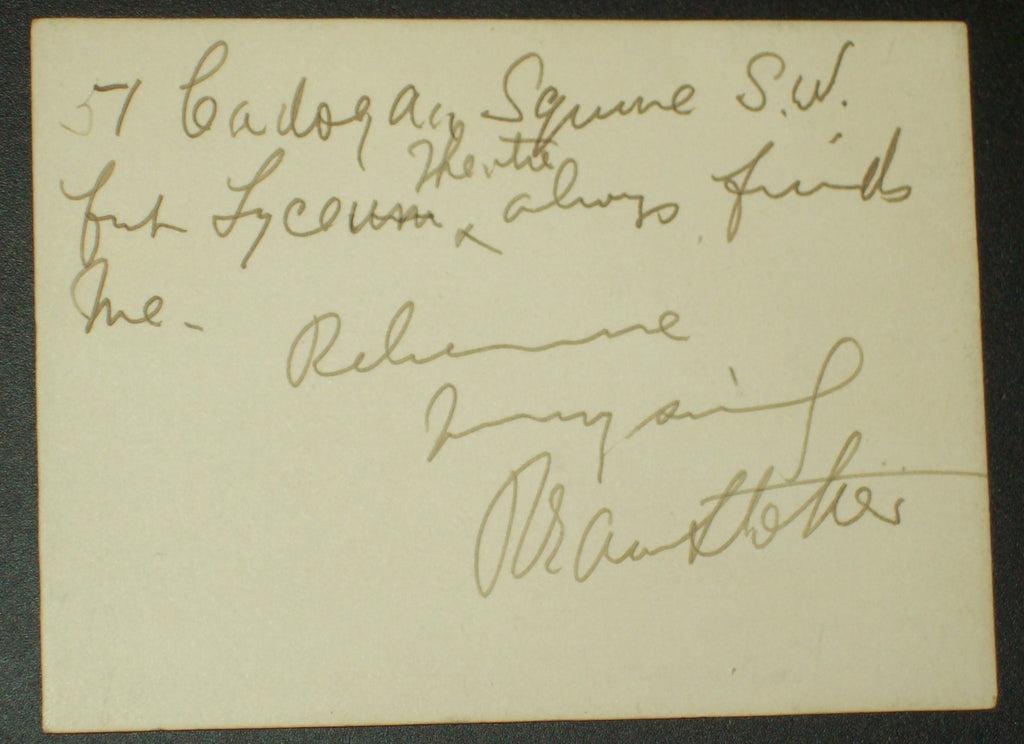 51 Cadogan Square S.W.
but Lyceum Theatre always finds
me.
Believe me
Bram Stoker